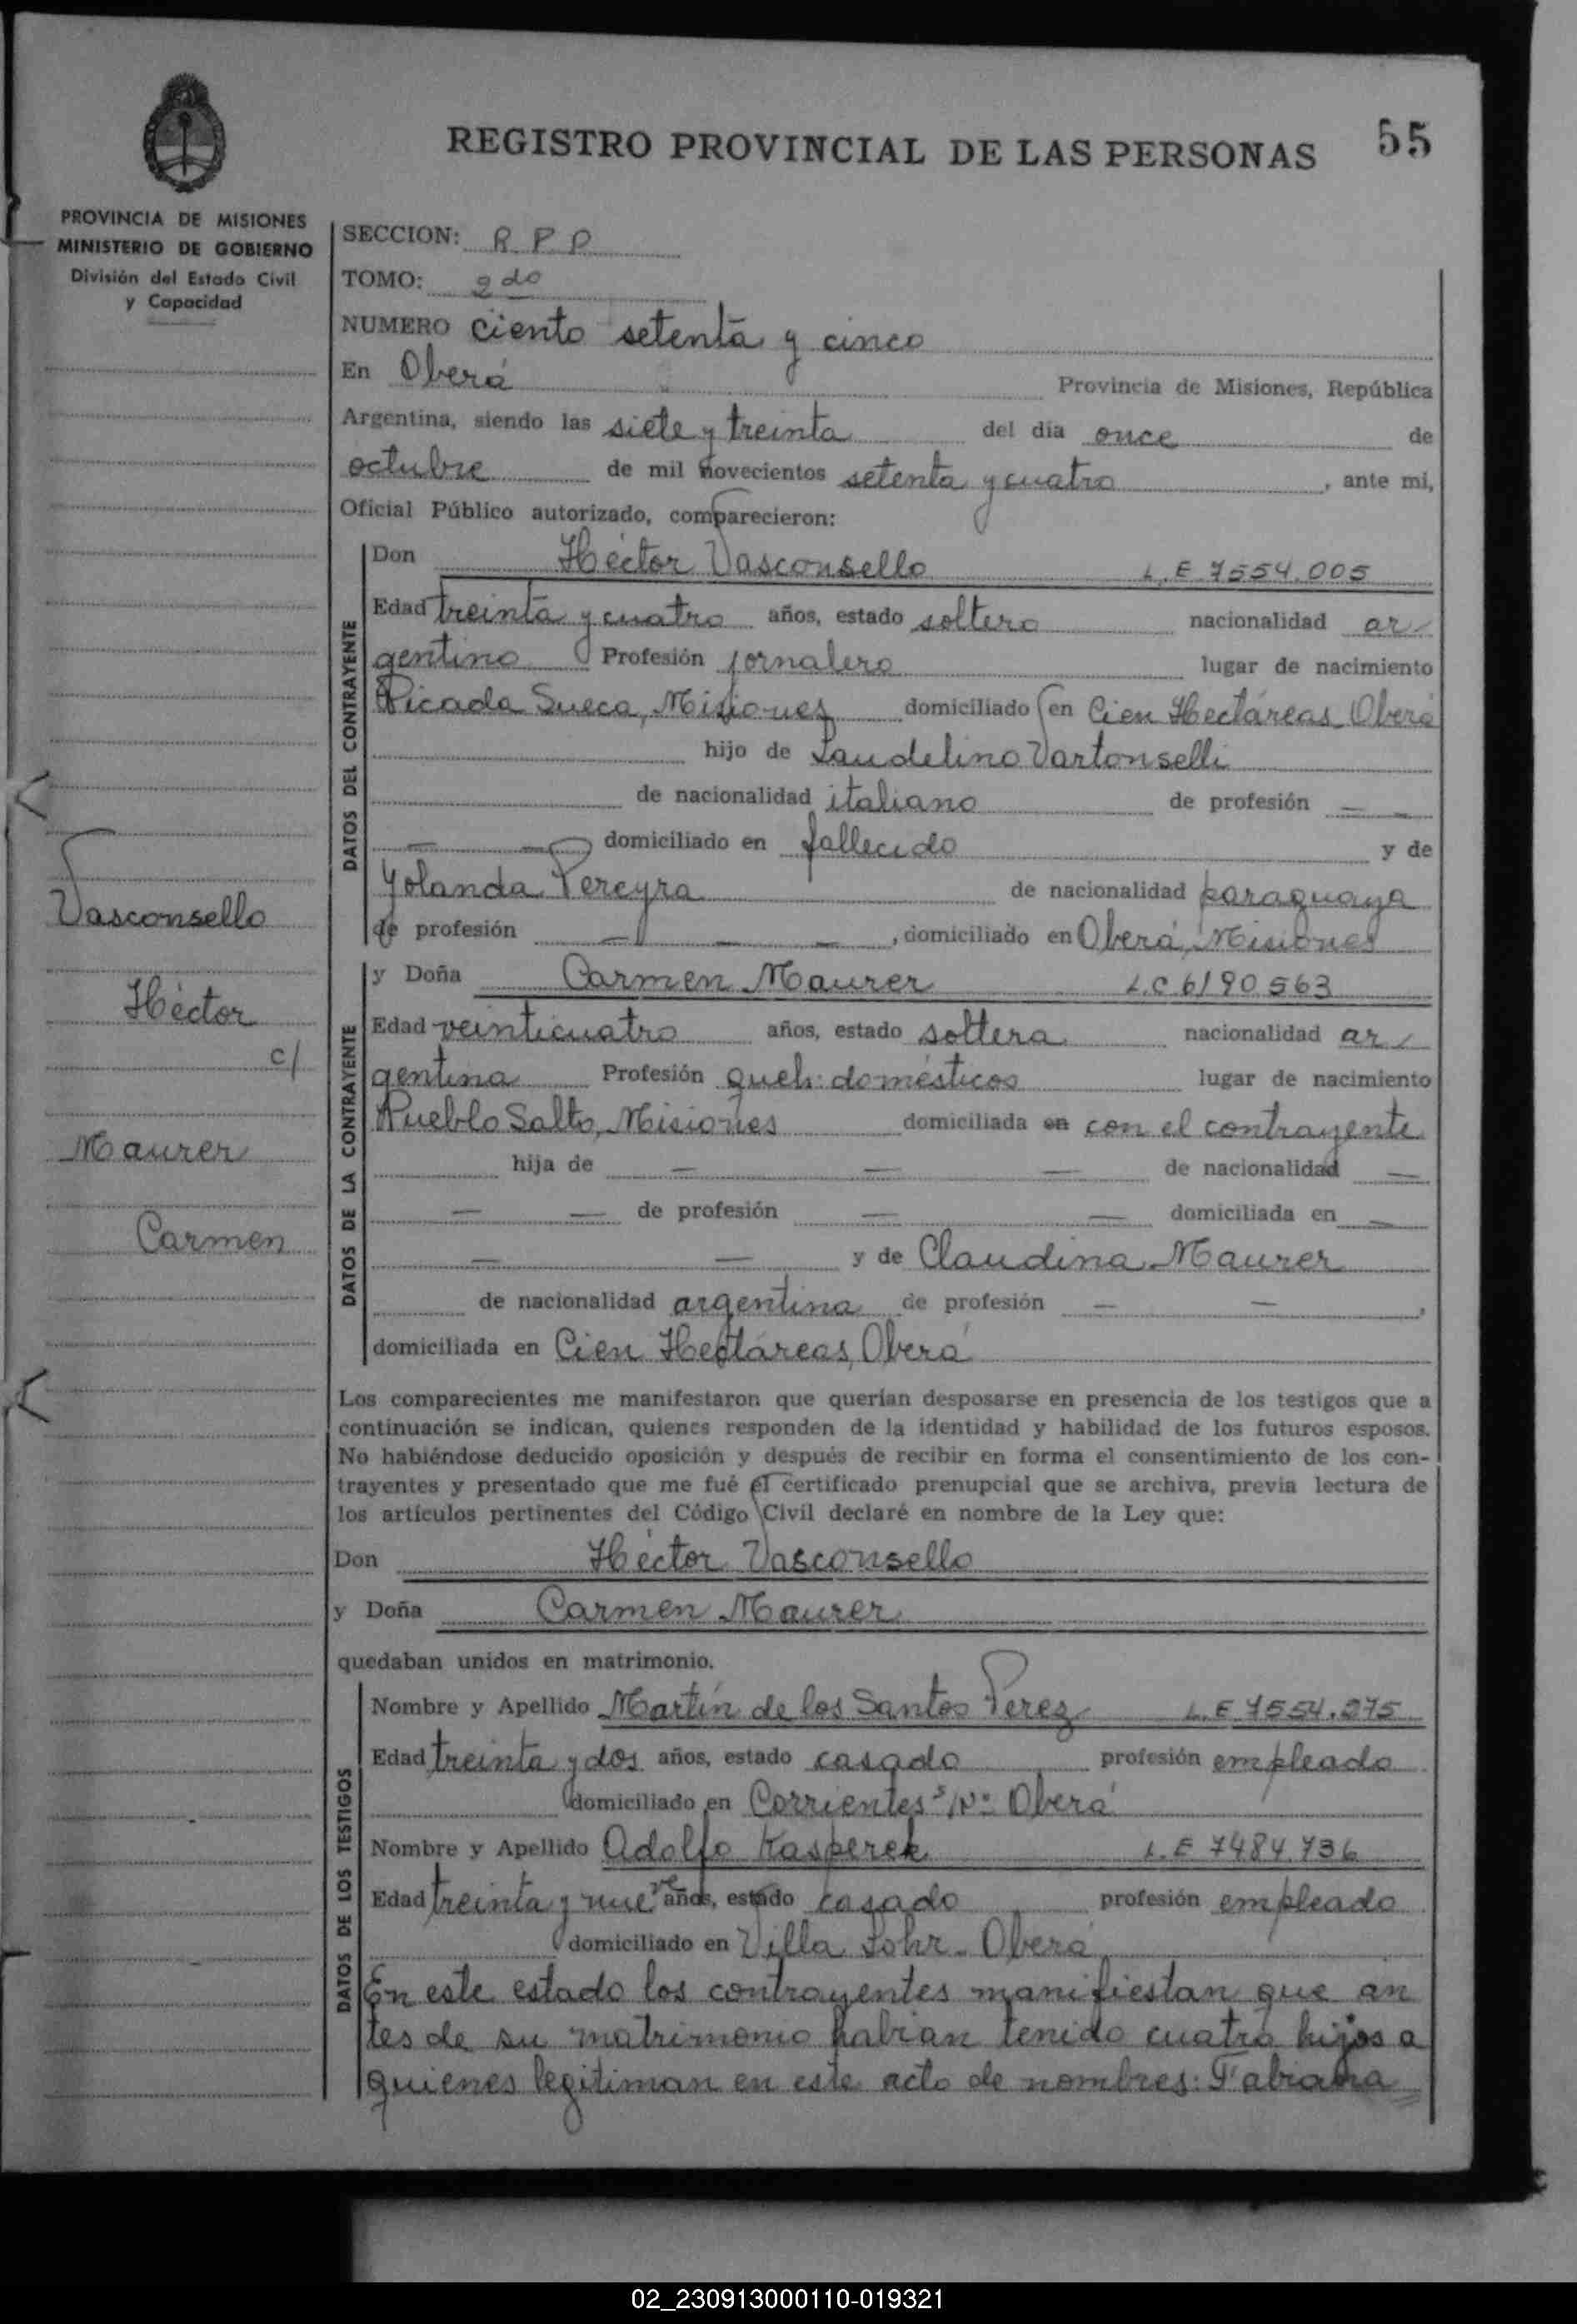 REGISTRO PROVINCIAL DE LAS PERSONAS
55
PROVINCIA DE MISIONES
MINISTERIO DE GOBIERNO
División del Estado Civil
y Capacidad
Vasconsello
Héctor
c/
Maurer
Carmen
SECCION: R P P
TOMO: 2do
NUMERO ciento setenta y cinco
En Oberá Provincia de Misiones, República
Argentina, siendo las siete y treinta del día once de
octubre de mil novecientos setenta y cuatro, ante mi,
Oficial Público autorizado, comparecieron:
DATOS DEL CONTRAYENTE
Don Héctor Vasconsello L.E 7554.005
Edad treinta y cuatro años, estado soltero nacionalidad ar
gentino Profesión jornalero lugar de nacimiento
Picada Sueca, Misiones domiciliado en Cien Hectáreas Oberá
hijo de Laudelino Vartonselli
de nacionalidad italiano de profesión — —
— — domiciliado en fallecido y de
Yolanda Pereyra de nacionalidad paraguaya
de profesión — — —, domiciliado en Oberá, Misiones
DATOS DE LA CONTRAYENTE
y Doña Carmen Maurer L.C 6190563
Edad veinticuatro años, estado soltera nacionalidad ar
gentina Profesión queh. domésticos lugar de nacimiento
Pueblo Salto, Misiones domiciliada en con el contrayente
hija de — — — de nacionalidad —
— — de profesión — — domiciliada en —
— — y de Claudina Maurer
de nacionalidad argentina de profesión — — ,
domiciliada en Cien Hectáreas, Oberá
Los comparecientes me manifestaron que querían desposarse en presencia de los testigos que a
continuación se indican, quienes responden de la identidad y habilidad de los futuros esposos.
No habiéndose deducido oposición y después de recibir en forma el consentimiento de los con-
trayentes y presentado que me fué el certificado prenupcial que se archiva, previa lectura de
los artículos pertinentes del Código Civil declaré en nombre de la Ley que:
Don Héctor Vasconsello
y Doña Carmen Maurer
quedaban unidos en matrimonio.
DATOS DE LOS TESTIGOS
Nombre y Apellido Martín de los Santos Perez L.E 7554.275
Edad treinta y dos años, estado casado profesión empleado
domiciliado en Corrientes s/Nº Oberá
Nombre y Apellido Adolfo Kasperek L.E 7484.736
Edad treinta y nueve años, estado casado profesión empleado
domiciliado en Villa Lohr - Oberá
En este estado los contrayentes manifiestan que an
tes de su matrimonio habían tenido cuatro hijos a
quienes legitiman en este acto de nombres: Fabiana
02_230913000110-019321